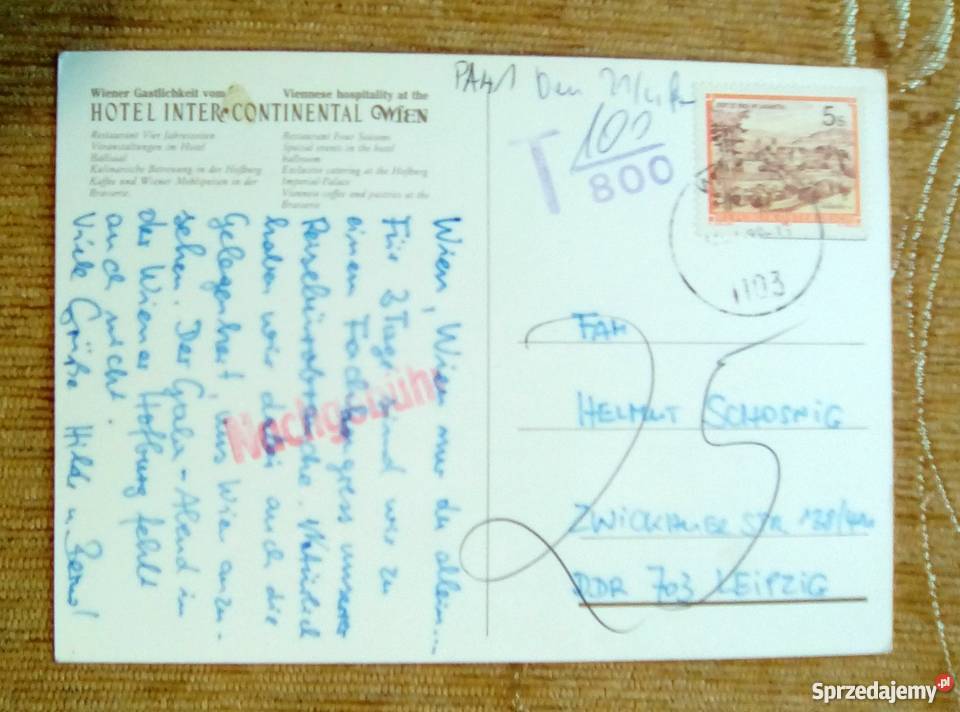 Wiener Gastlichkeit vom
HOTEL INTER•CONTINENTAL WIEN
Restaurant Vier Jahreszeiten
Veranstaltungen im Hotel
Ballsaal
Kulinarische Betreuung in der Hofburg
Kaffee und Wiener Mehlspeisen in der
Brasserie
Viennese hospitality at the
Restaurant Four Seasons
Special events in the hotel
ballroom
Exclusive catering at the Hofburg
Imperial Palace
Viennese coffee and pastries at the
Brasserie
Wien, Wien nur du allein...
Für 2 Tage sind wir zu
einem Fachkongress unserer
Reisebürobranche. Natürlich
haben wir dabei auch die
Gelegenheit, uns Wien anzu-
sehen. Der Gala-Abend in
der Wiener Hofburg fehlt
auch nicht.
Viele Grüße Hilde u. Bernd
Nachgebühr
Den 21/
T
100
800
5s
1103
25
FAM
HELMUT SCHOSNIG
ZWICKAUER STR 138/
DDR 703 LEIPZIG
Sprzedajemy.pl